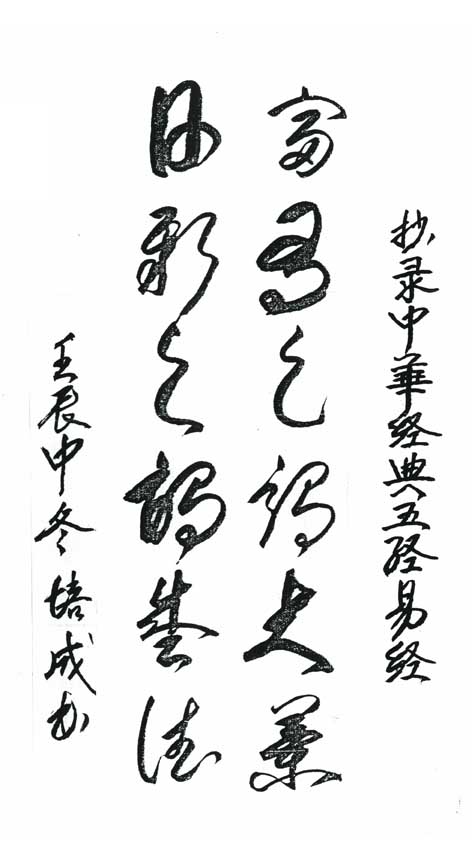 抄录中华经典五经易经
富有之谓大業
日新之谓盛德
壬辰中冬培成书